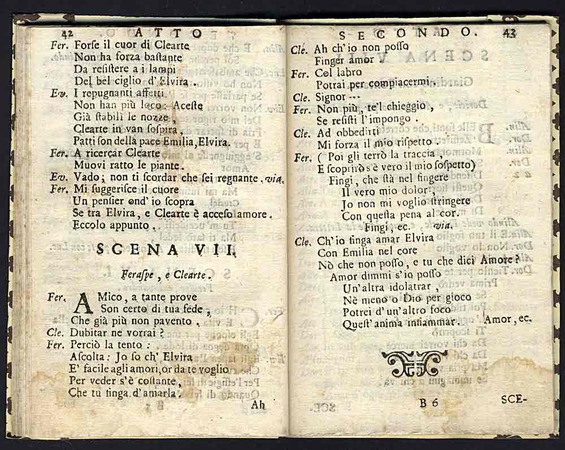 42 ATTO
Fer. Forse il cuor di Clearte
Non ha forza bastante
Da resistere a i lampi
Del bel ciglio d'Elvira.
Ev. I repugnanti affetti
Non han più loco: Aceste
Già stabilì le nozze,
Clearte in van sospira,
Patti son della pace Emilia, Elvira.
Fer. A ricercar Clearte
Muovi ratto le piante.
Ev. Vado; non ti scordar che sei regnante. via.
Fer. Mi suggerisce il cuore
Un pensier ond'io scopra
Se tra Elvira, e Clearte è acceso amore.
Eccolo appunto.
SCENA VII.
Feraspe, e Clearte.
Fer. AMico, a tante prove
Son certo di tua fede,
Che già più non pavento.
Cle. Dubitar ne vorrai?
Fer. Perciò la tento:
Ascolta: Jo so ch' Elvira
E' facile agli amori, or da te voglio
Per veder s'è costante,
Che tu finga d'amarla.
Ah
SECONDO. 43
Cle. Ah ch'io non posso
Finger amor.
Fer. Col labro
Potrai per compiacermi.
Cle. Signor ---
Fer. Non più, te'l chieggio,
Se resisti l'impongo.
Cle. Ad obbedirti
Mi forza il mio rispetto.
Fer. ( Poi gli terrò la traccia,
E scopirò s'è vero il mio sospetto)
Fingi, che stà nel fingere
Il vero mio dolor;
Jo non mi voglio stringere
Con questa pena al cor.
Fingi, ec. via.
Cle. Ch'io finga amar Elvira
Con Emilia nel core
Nò che non posso, e tu che dici Amore?
Amor dimmi s'io posso
Un'altra idolatrar,
Nè meno o Dio per gioco
Potrei d'un'altro foco
Quest'anima infiammar. Amor, ec.
B 6 SCE-